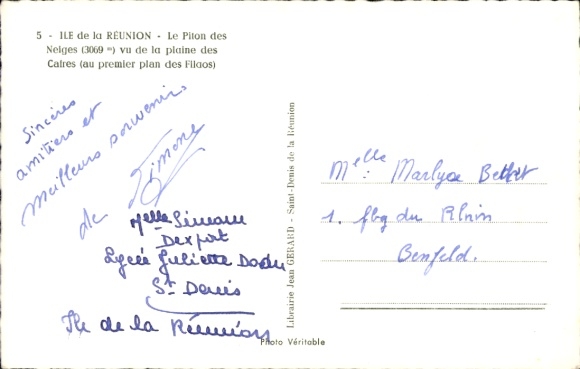 5 - ILE de la RÉUNION - Le Piton des
Neiges (3069 m) vu de la plaine des
Cafres (au premier plan des Filaos)
Sincères
amitiers et
meilleurs souvenirs
de Simone
Melle Simone
Lycée Juliette Dodu
St Denis
Ile de la Réunion
Librairie Jean GERARD - Saint-Denis de la Réunion
Melle: Marlyse
1. fbg du Rhin
Benfeld.
Photo Véritable